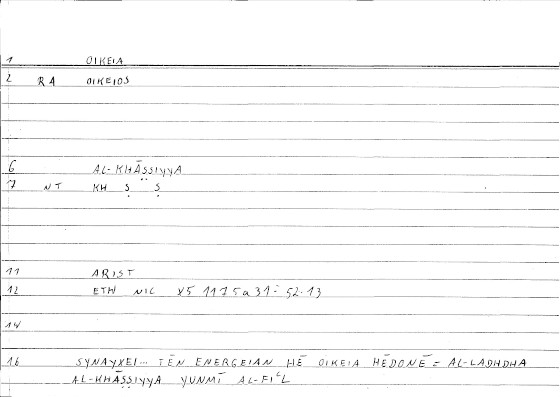 1 OIKEIA
2 RA OIKEIOS
6 AL-KHĀṢṢIYYA
7 NT KH Ṣ Ṣ
11 ARIST
12 ETH NIC X5 1175a31 = 52.13
14
16 SYNAYXEI... TĒN ENERGEIAN HĒ OIKEIA HĒDONĒ = AL-LADHDHA
AL-KHĀṢṢIYYA YUNMĪ AL-FIʿL